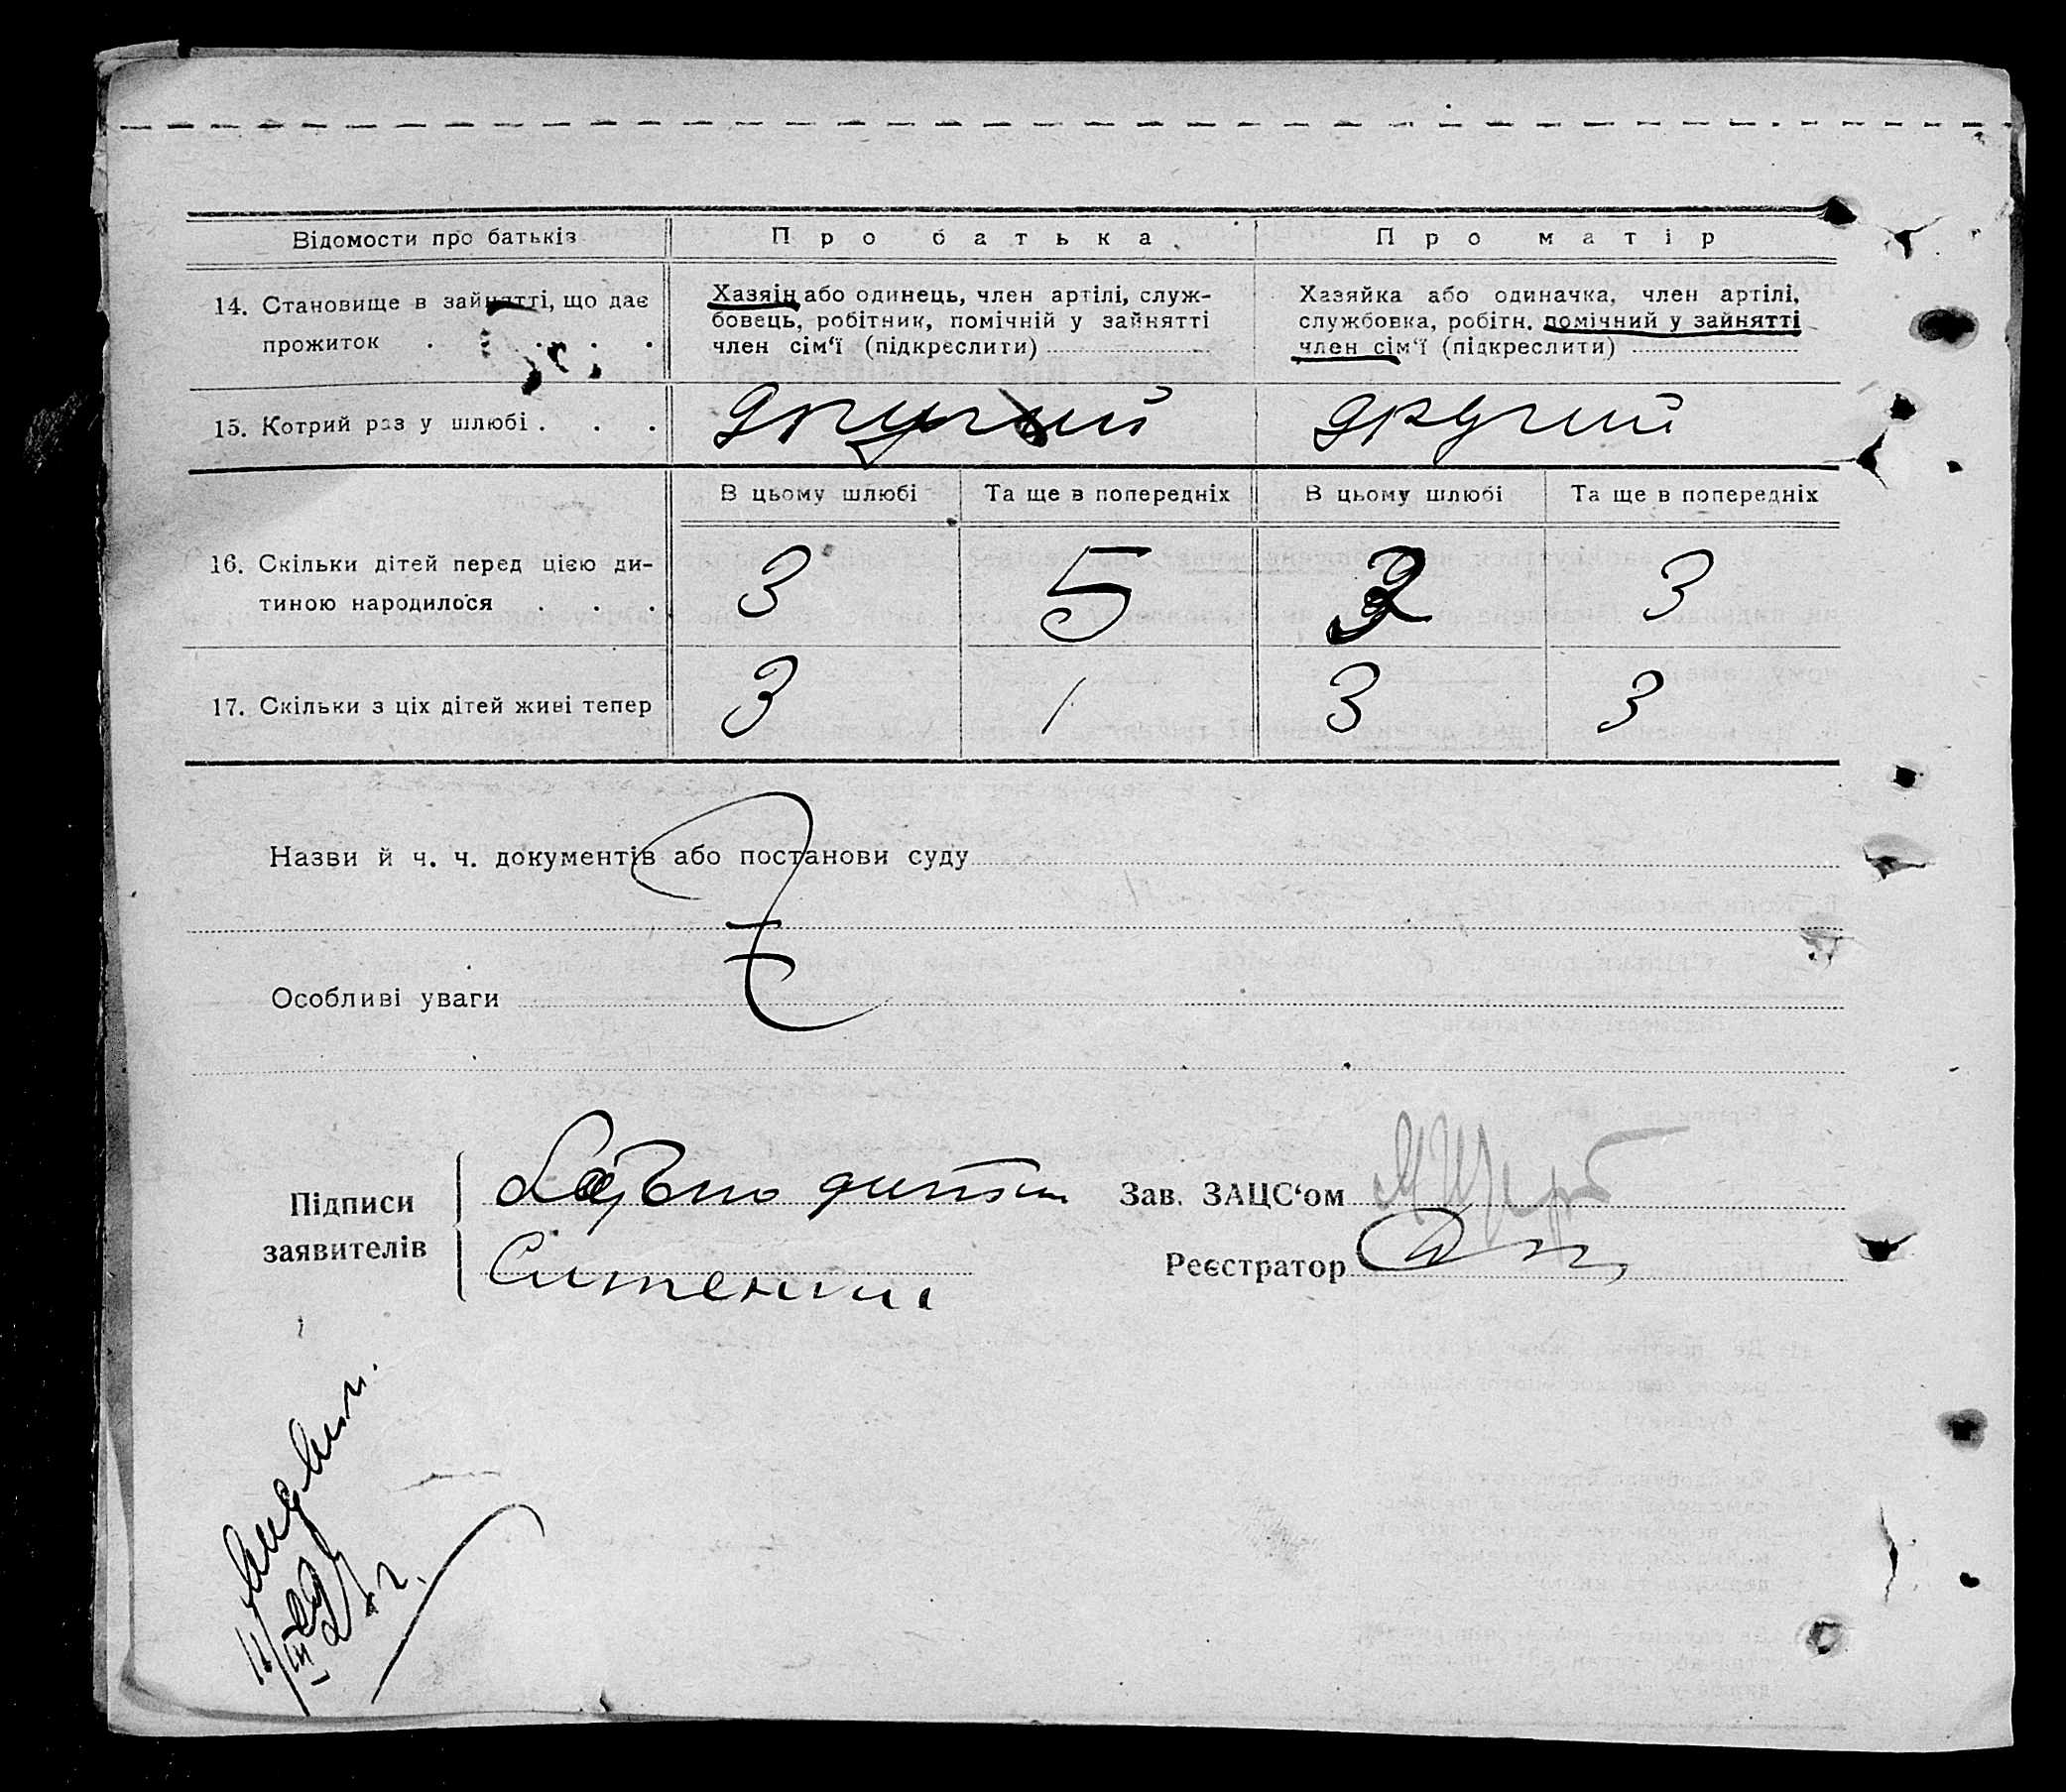 Відомости про батьків
Про батька
Про матір
14. Становище в зайнятті, що дає
прожиток . . . .
Хазяїн або одинець, член артілі, служ-
бовець, робітник, помічній у зайнятті
член сім‘ї (підкреслити)
Хазяйка або одиначка, член артілі,
службовка, робітн. помічний у зайнятті
член сім‘ї (підкреслити)
15. Котрий раз у шлюбі . . .
другий
другий
В цьому шлюбі
Та ще в попередніх
В цьому шлюбі
Та ще в попередніх
16. Скільки дітей перед цією ди-
тиною народилося . . .
3
5
3
3
17. Скільки з ціх дітей живі тепер
3
1
3
3
Назви й ч. ч. документів або постанови суду
Особливі уваги
Підписи
заявителів
Зав. ЗАЦС‘ом
Реєстратор